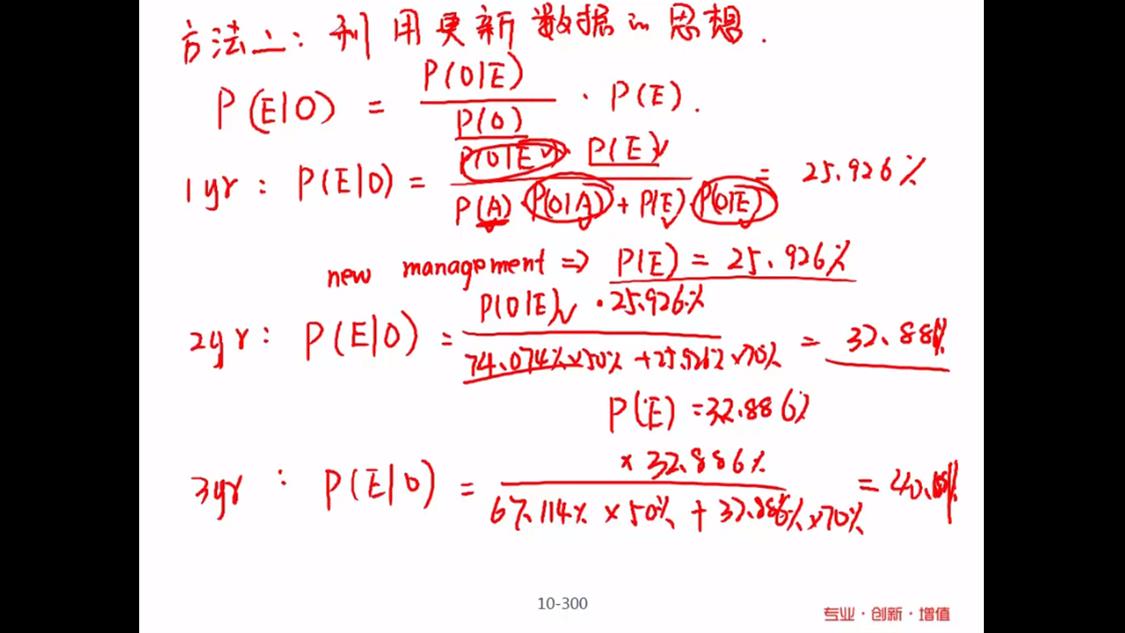 方法二: 利用更新数据的思想.
P(E|O) = P(O|E) / P(O) · P(E).
1yr: P(E|O) = P(O|E) P(E) / P(A) · P(O|A) + P(E) · P(O|E) = 25.926%
new management => P(E) = 25.926%
2yr: P(E|O) = P(O|E) · 25.926% / 74.074% x 50% + 25.926% x 70% = 32.886%
P(E) = 32.886%
3yr: P(E|O) = x 32.886% / 67.114% x 50% + 32.886% x 70% =
10-300
专业·创新·增值